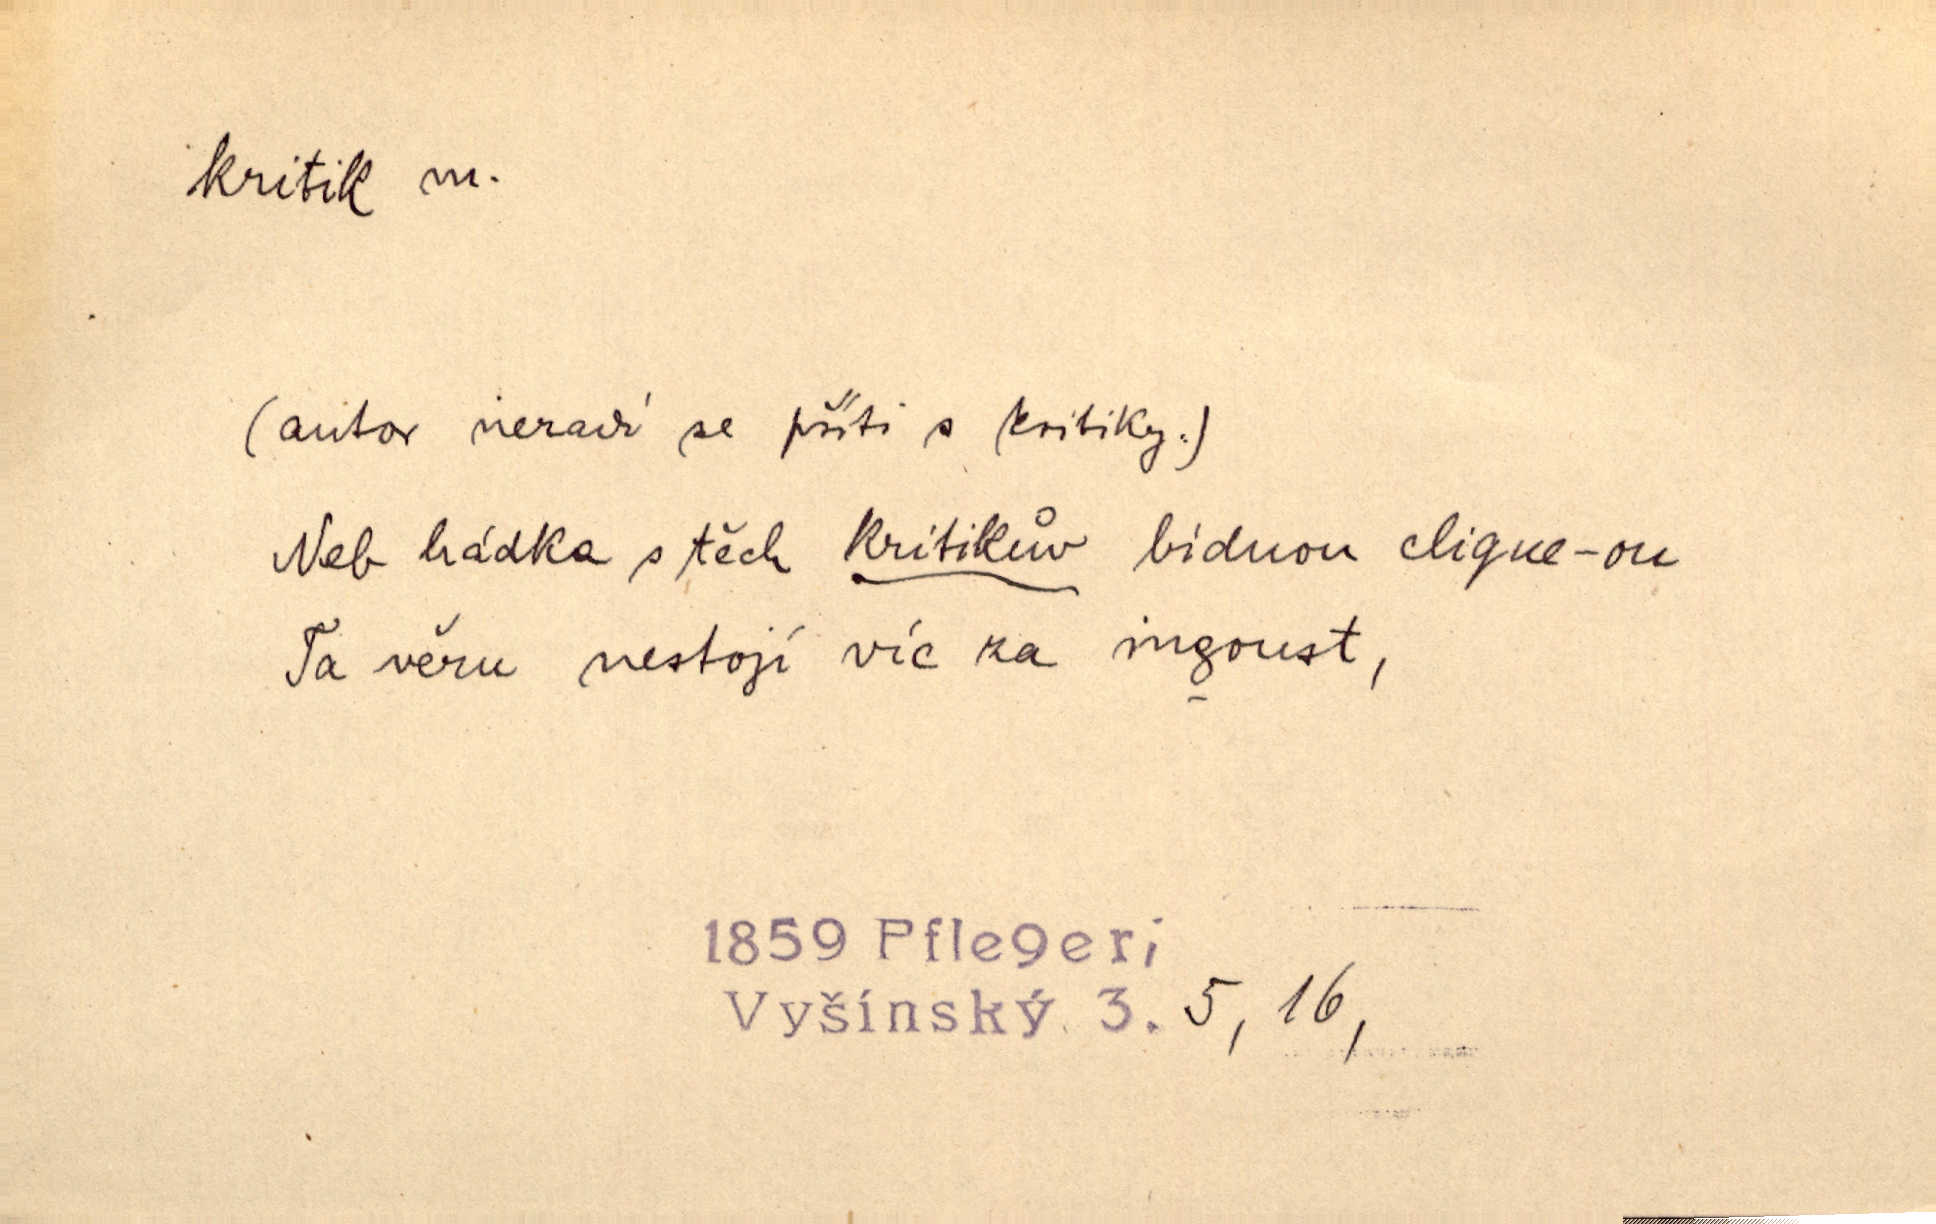 kritik m.
(autor neradí se příti s kritiky.)
Neb hádka s těch kritikův bídnou clique-ou
Ta věru nestojí víc za ingoust,
1859 Pfleger;
Vyšínský 3. 5, 16,